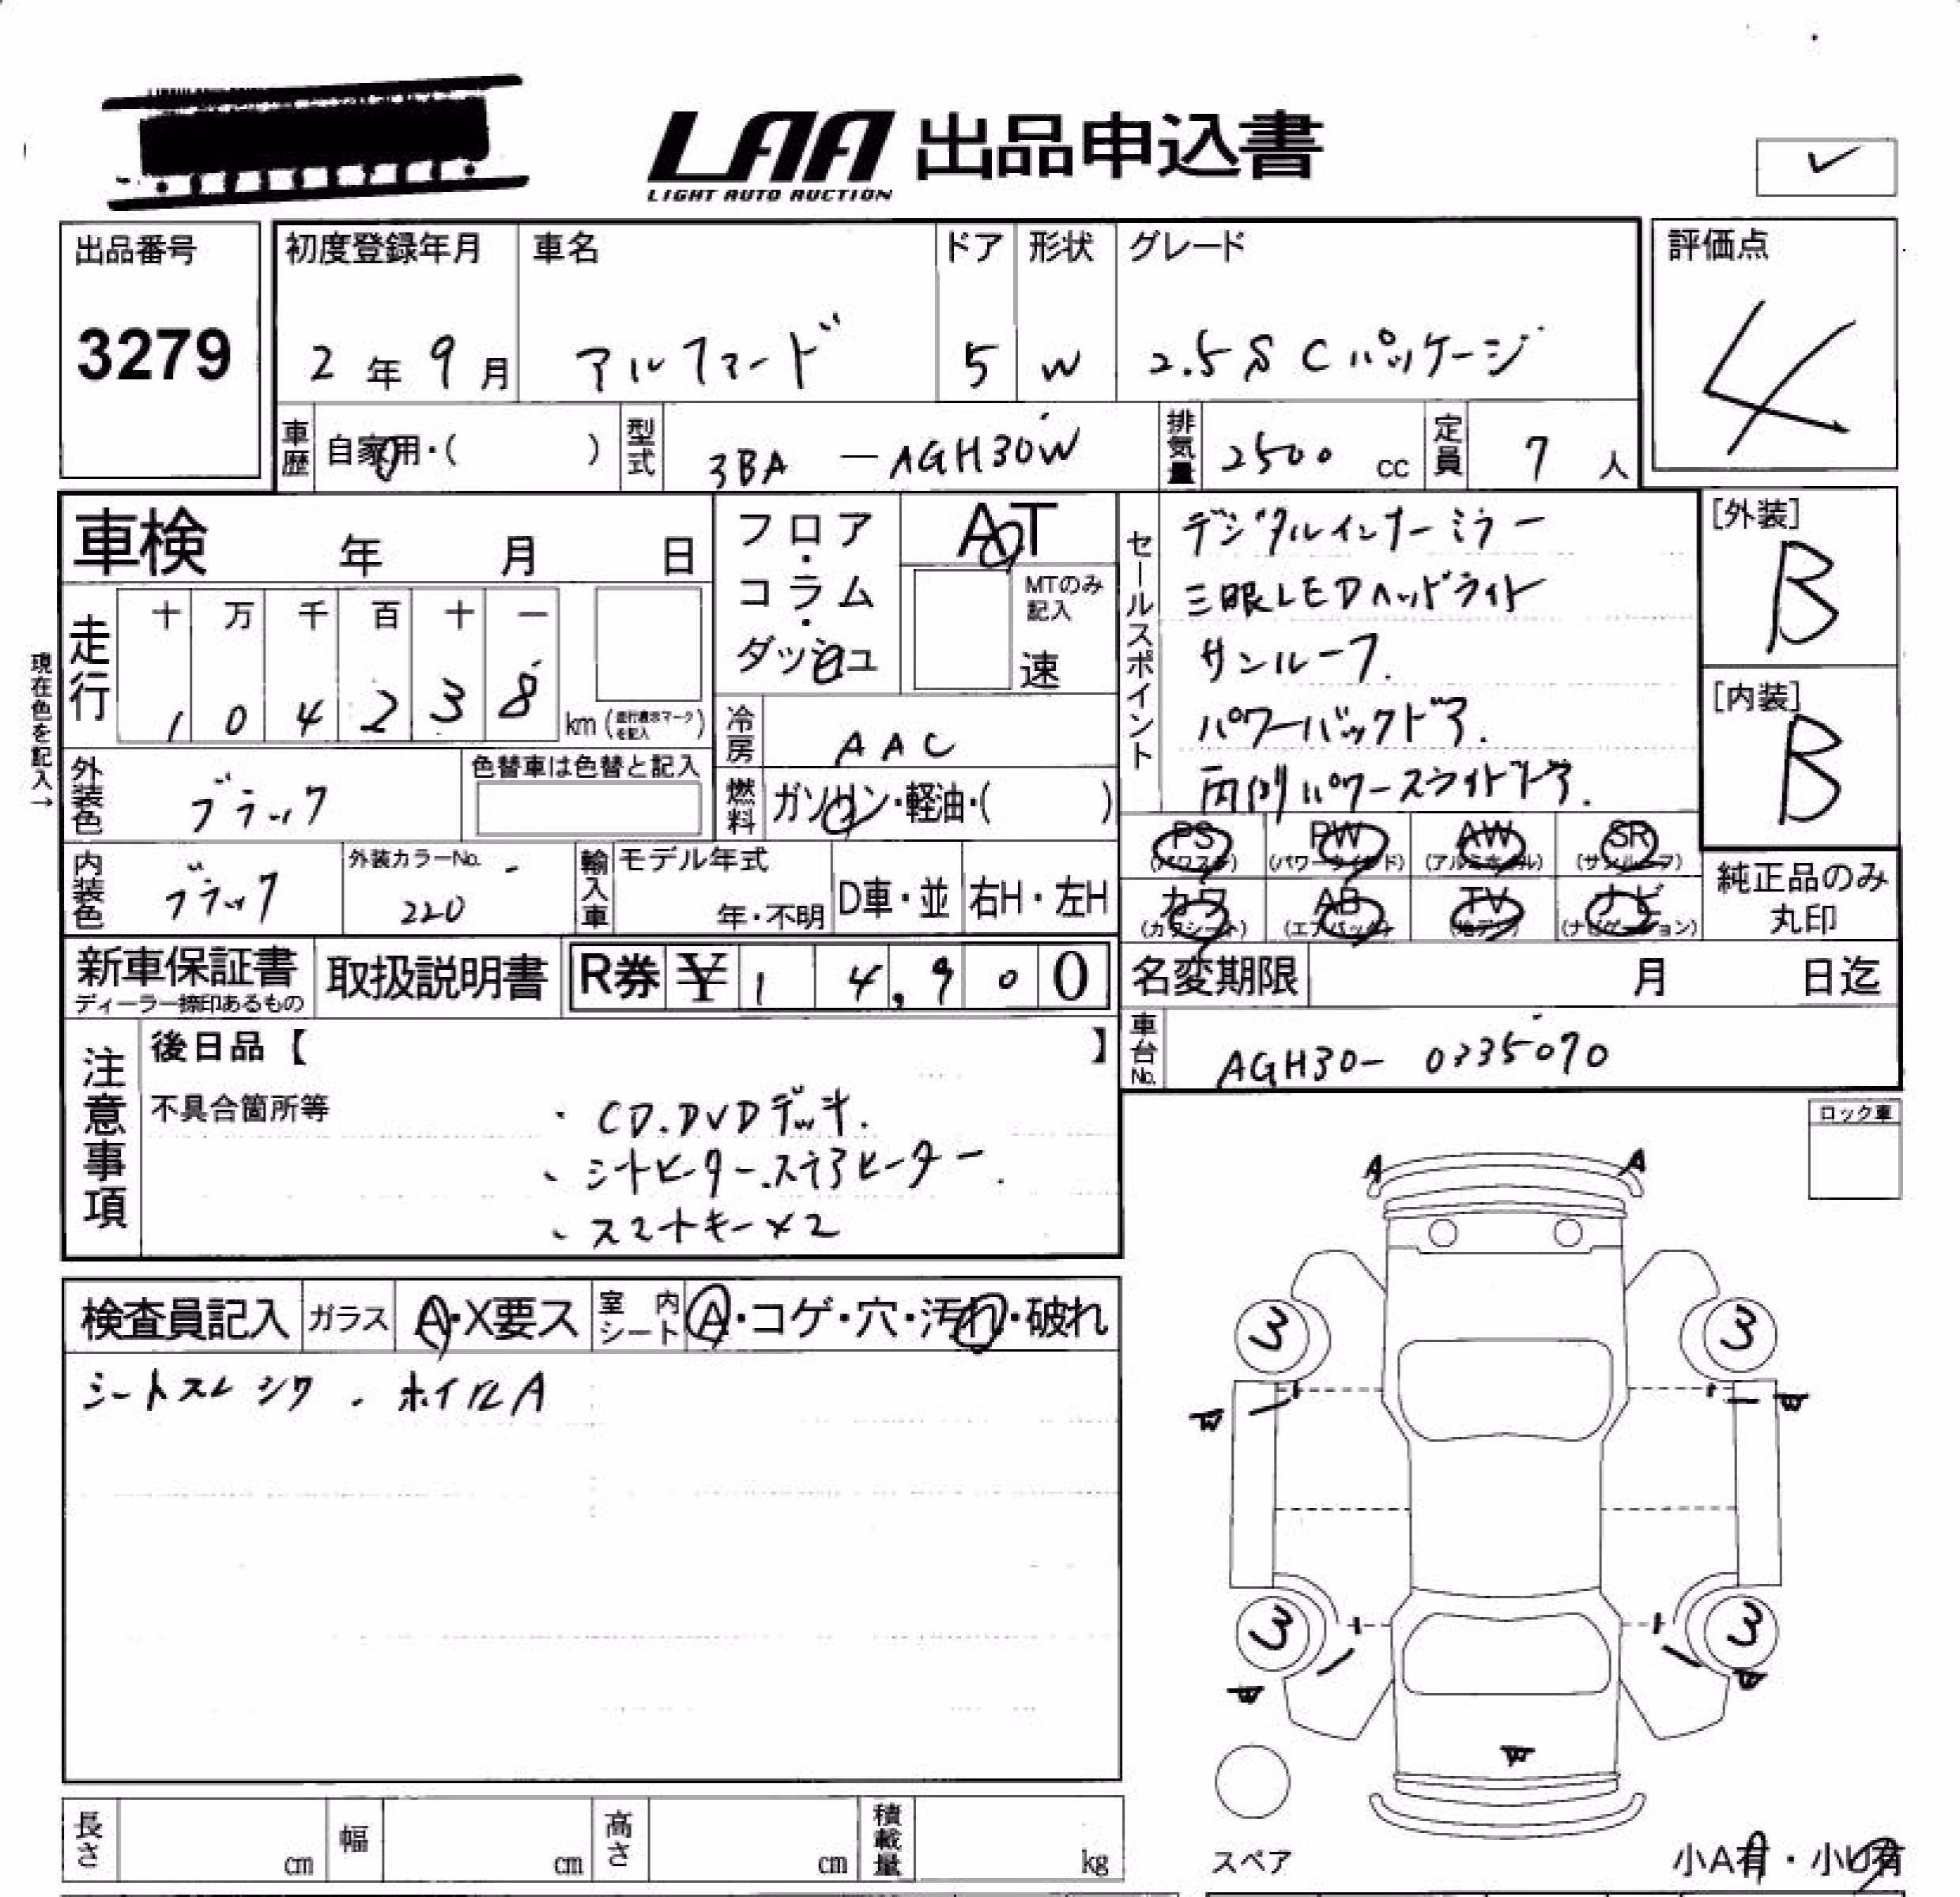 LAA 出品申込書
LIGHT AUTO AUCTION
出品番号
3279
初度登録年月
2年9月
車名
アルファード
ドア
5
形状
W
グレード
2.5 S Cパッケージ
評価点
4
車歴
自家用・( )
型式
3BA - AGH30W
排気量
2500 cc
定員
7 人
車検 年 月 日
フロア・コラム・ダッシュ
AT
MTのみ記入
速
走行
十 万 千 百 十 一
1 0 4 2 3 8
km (走行表示マークを記入)
現在色を記入→
冷房
AAC
外装色
ブラック
色替車は色替と記入
燃料
ガソリン・軽油・( )
内装色
ブラック
外装カラーNo.
220
輸入車
モデル年式
年・不明
D車・並
右H・左H
セールスポイント
デジタルインナーミラー
三眼LEDヘッドライト
サンルーフ.
パワーバックドア.
両側パワースライドドア.
[外装]
B
[内装]
B
PS (パワステ)
PW (パワーウインド)
AW (アルミホイル)
SR (サンルーフ)
カワ (カワシート)
AB (エアバック)
TV (地デジ)
ナビ (ナビゲーション)
純正品のみ
丸印
新車保証書
ディーラー捺印あるもの
取扱説明書
R券 ¥ 1 4,9 0 0
名変期限 月 日迄
車台No.
AGH30- 0335070
注意事項
後日品【 】
不具合箇所等
・CD.DVDデッキ.
、シートヒーター.ステアヒーター.
、スマートキー×2
ロック車
検査員記入
ガラス
A・X要ス
室内シート
A・コゲ・穴・汚れ・破れ
シートスレ シワ . ホイルA
A A
3 3
W W
3 3
W W
W
スペア
小A有・小U有
長さ cm
幅 cm
高さ cm
積載量 kg